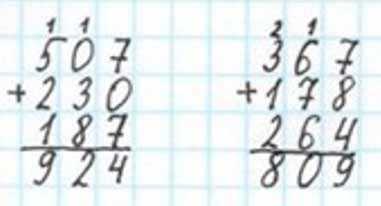 1 1
507
+230
187
924
2 1
367
+178
264
809